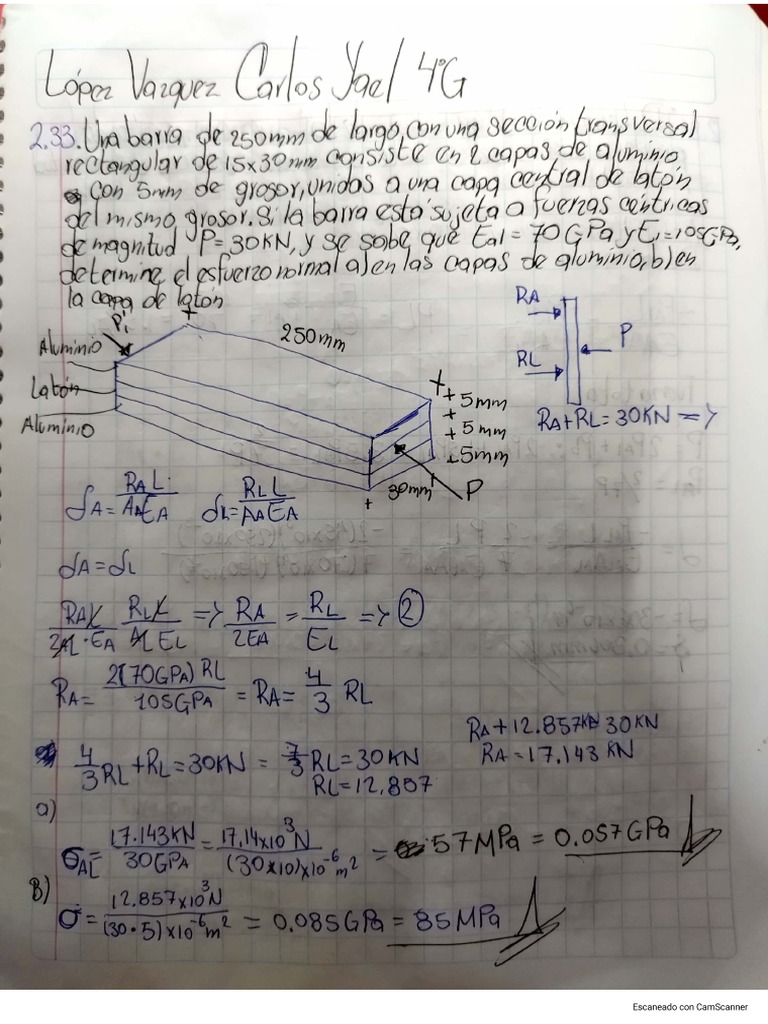 López Vazquez Carlos Yael 4°G
2.33. Una barra de 250mm de largo, con una sección transversal
rectangular de 15x30mm consiste en 2 capas de aluminio
con 5mm de grosor, unidas a una capa central de latón
del mismo grosor. Si la barra está sujeta a fuerzas céntricas
de magnitud P=30KN, y se sabe que Eal=70GPa y El=105GPa,
determine el esfuerzo normal a)en las capas de aluminio, b)en
la capa de latón
RA
P
RL
RA+RL=30KN =>
P'
250mm
Aluminio
Latón
Aluminio
5mm
5mm
5mm
30mm
P
δA= RAL / AAEA δL= RLL / AAEA
δA=δL
RAL / 2AL·EA RLL / AL EL => RA / 2EA = RL / EL => 2
RA= 2(70GPA)RL / 105GPA = RA= 4/3 RL
4/3 RL+RL=30KN = 7/3 RL=30KN
RL=12,857
RA+12.857KN 30KN
RA=17.143 KN
a)
σAL= 17.143KN / 30GPA = 17.14x10³N / (30x10)x10⁻⁶m² = 57MPa = 0.057GPa
B)
σ= 12.857x10³N / (30·5)x10⁻⁶m² = 0.085GPa = 85MPa
Escaneado con CamScanner